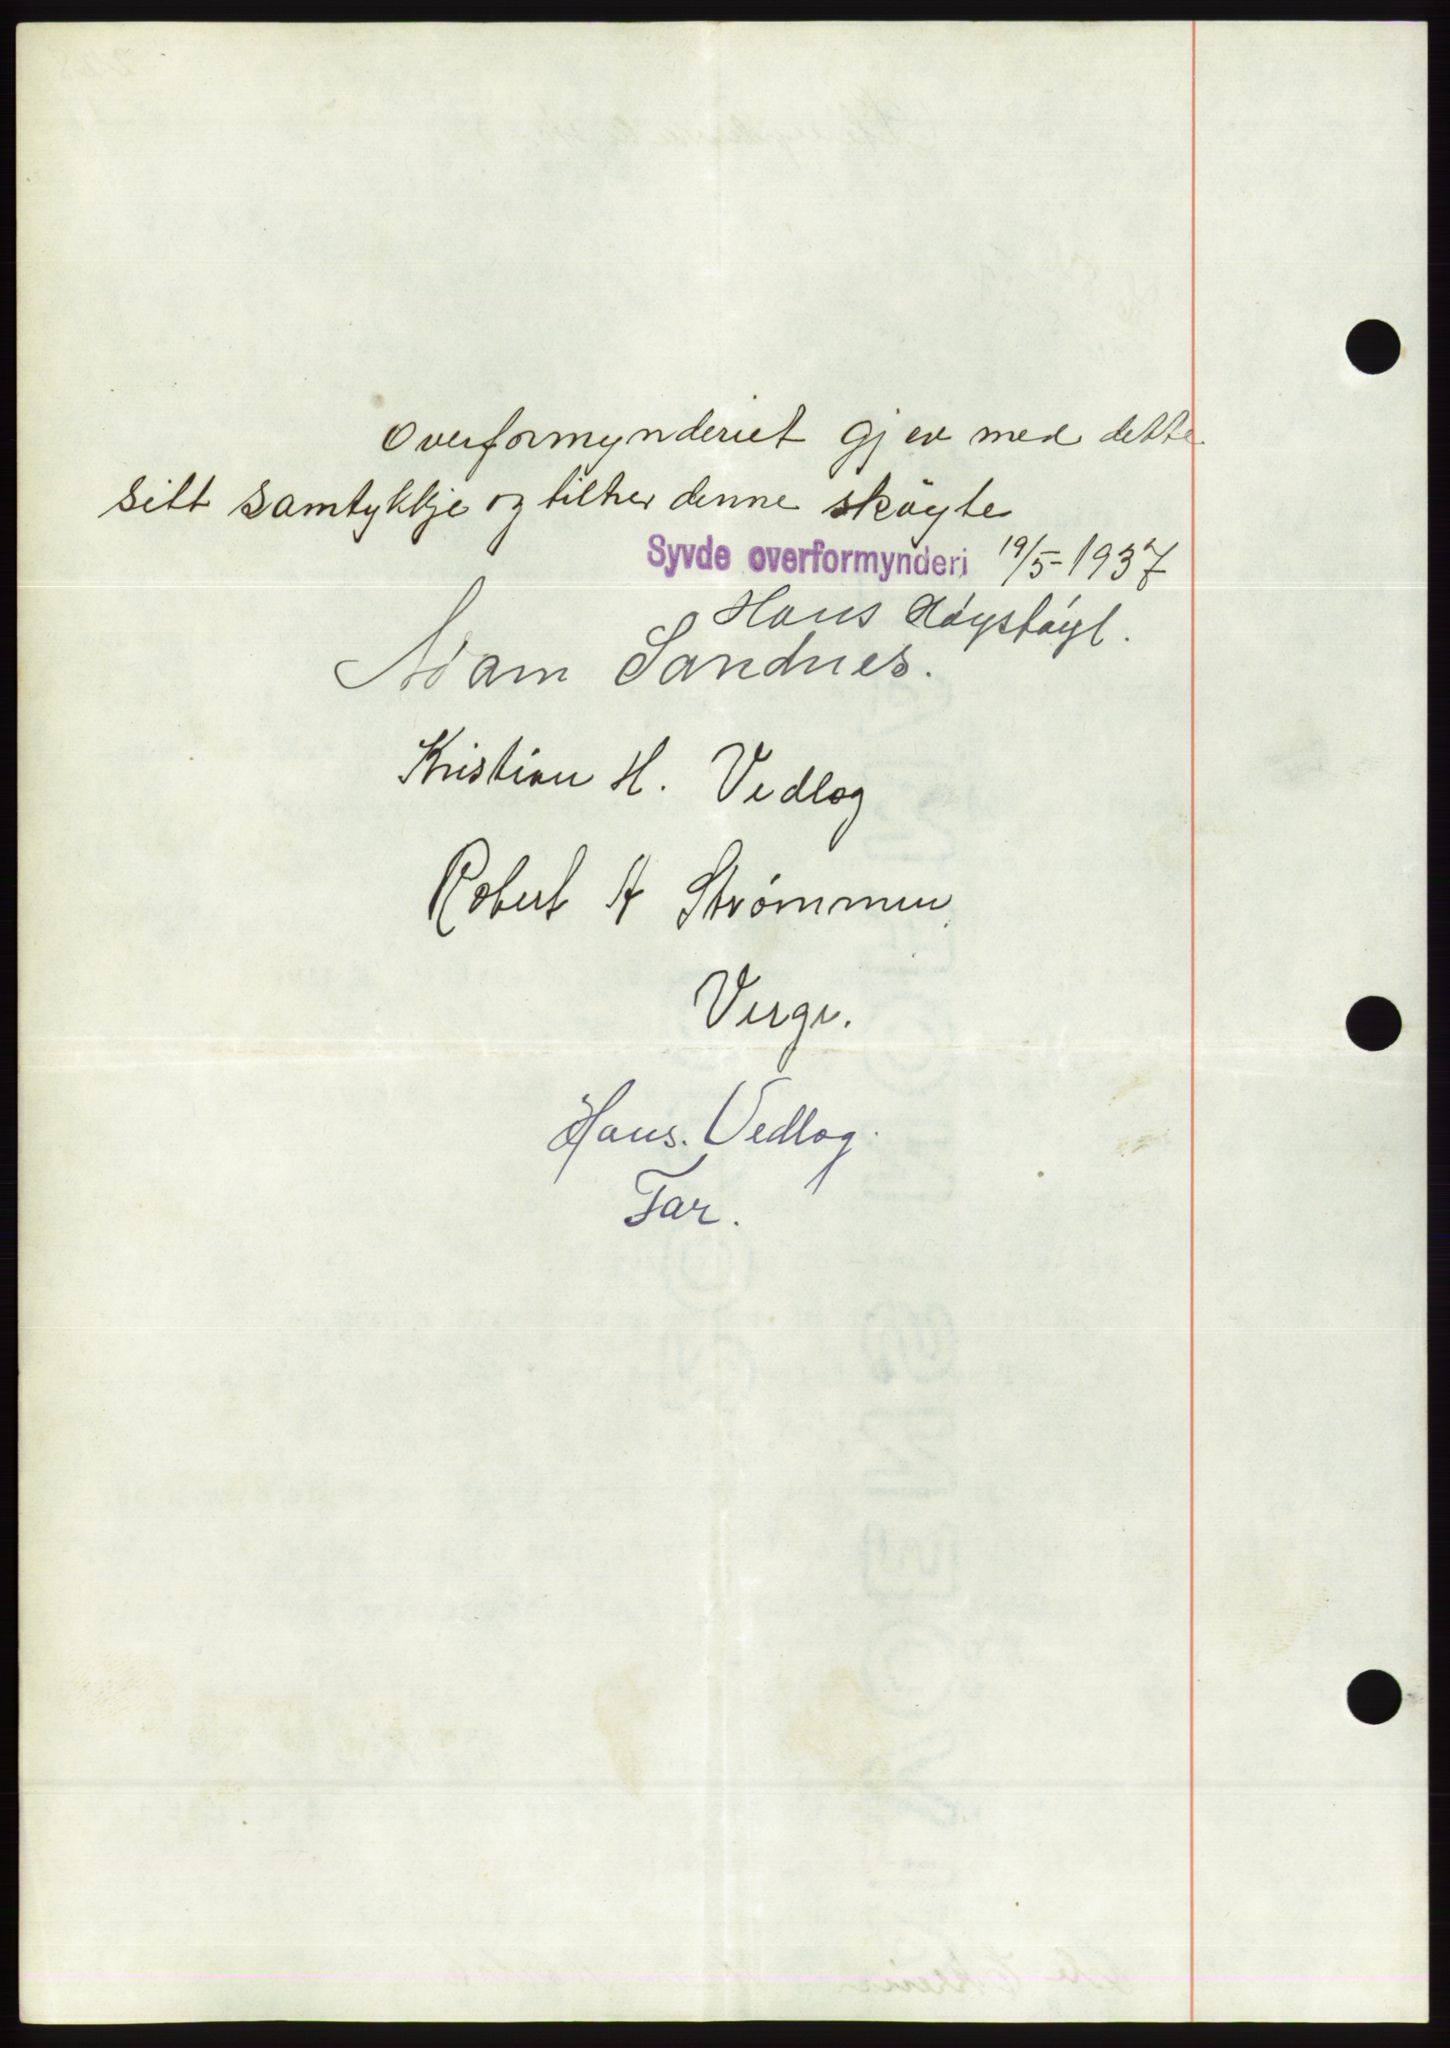 Overformynderiet gjev med dette
sitt samtykkje og til her denne skøyte
Syvde overformynderi 19/5-1937
Hans
Adam Sandnes.
Kristian H. Vedlog
Robert A Strømmen
Verge.
Hans. Vedlog.
Far.